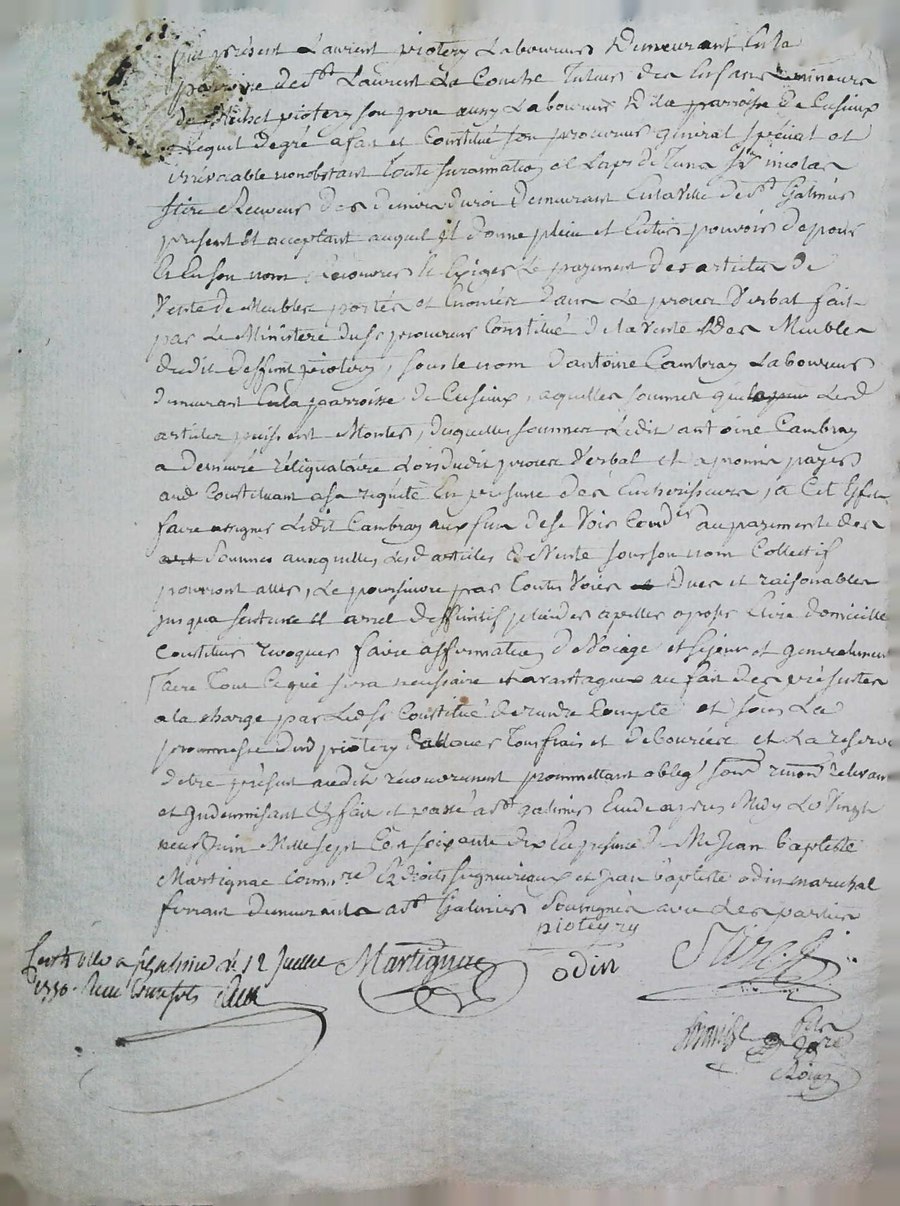 fut présent Laurent piotery Laboureur Demeurant En la
parroisse de St Laurent La Conche Tuteur des Enfans mineurs
de Michel piotery son frere aussy Laboureur De la parroisse de Cusieux
Lequel de gré a fait et Constitué son procureur général spécial et
irrévocable nonobstant toute surannation et Laps de Tems Sr nicolas
Sire Receveur des deniers du roi Demeurant En la Ville de St Galmier
present Et acceptant auquel il donne plein et Entier pouvoir de pour
Et En son nom Recouvrer Et Exiger Le payement des articles de
Vente de Meubles portés et Enoncés dans Le procer Verbal fait
par Le Ministere du Sr procureur Constitué de la Vente Des Meubles
du dit deffunt piotery, sous le nom d'antoine Cambray Laboureur
demeurant En la parroisse de Cusieux, a quelles sommes que Lesd
articles puissent Monter, desquelles sommes Ledit antoine Cambray
a demeuré réliquataire Lors dudit procer Verbal et a promis payer
aud Constituant a sa requête En presence des Encherisseurs, a Cet Effet
faire assigner Ledit Cambray aux fins de se Voir Cond er au payement des
sommes auxquelles Lesd articles de Vente sous son nom Collectif
pourront aller, Le poursuivre par toutes Voies Dues et raisonables
jusqua sentence Et arret deffinitif plaider apeller oposer Elire domicille
Constituer revoquer faire affirmation de Voiage et séjour et generalement
faire Tout Ce qui sera necessaire et avantageux au fait des présentes
a la charge par Led Sr Constitué de rendre Compte et sous La
prommesse dud piotery d'allouer tous frais et debourcés et La reserve
detre présent audit recouvrement prommettant oblig soum renon relevant
et indemnisant Et fait et passé a St galmier Etude apres Midy Le Vingt
neuf Juin Mille sept Cent soixante dix En presence de Me Jean baptiste
Martignac Comre Es droits seigneuriaux et Jean baptiste odin marechal
ferrant demeurants a St Galmier soussignés avec Les parties
pioteyry
Martignac odin Sire
Controlé a St galmier Le 12 Juillet
1770. Reçu